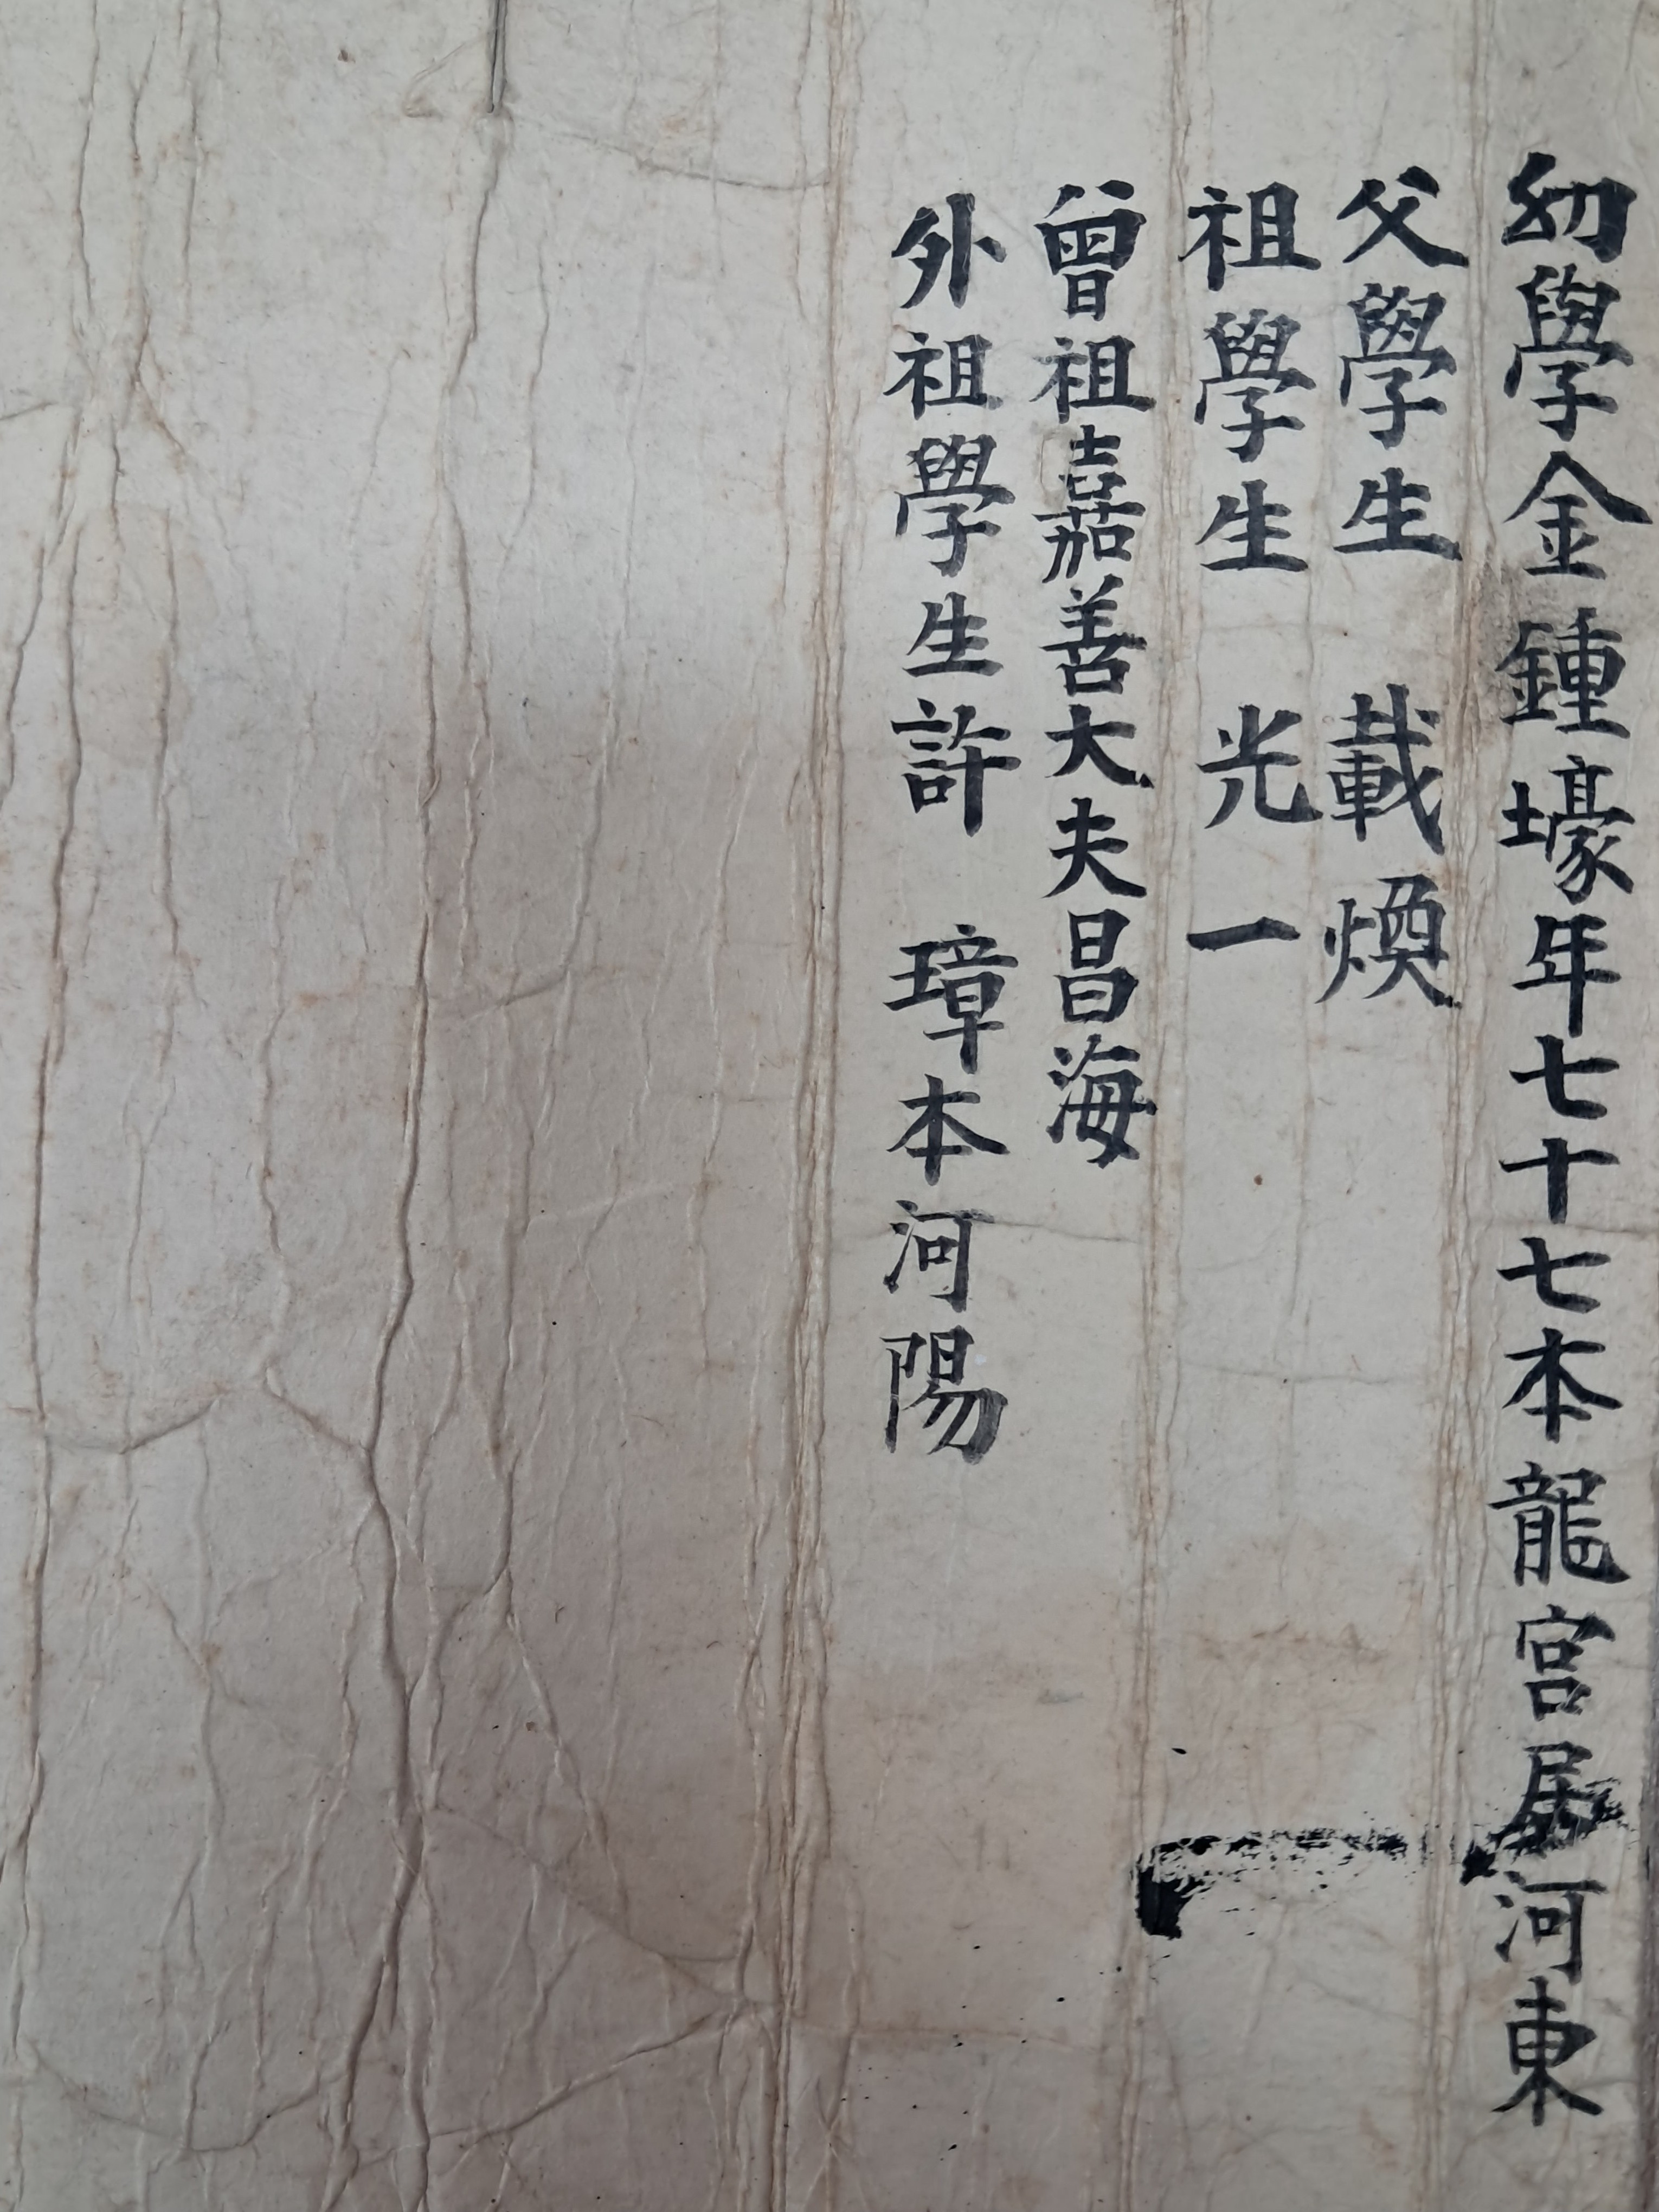 幼學金鍾壕年七十七本龍宮居河東
父學生 載煥
祖學生 光一
曾祖嘉善大夫昌海
外祖學生許 璋本河陽